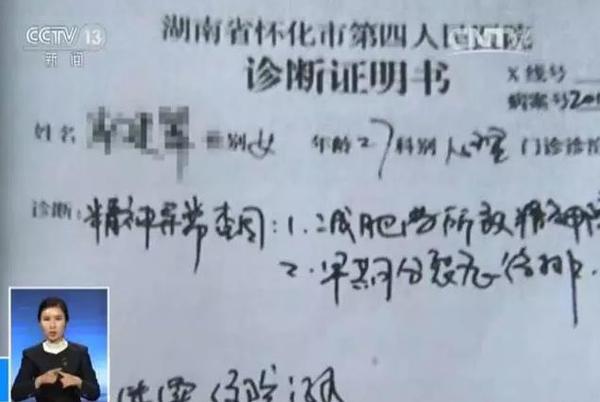 CCTV 13
新闻
湖南省怀化市第四人民医院
诊断证明书
X线号
病案号 20
姓名 别 女 年龄 27 科别 心理 门诊
诊断: 精神异常查因: 1. 减肥药所致精神
2. 早期分裂症待排.